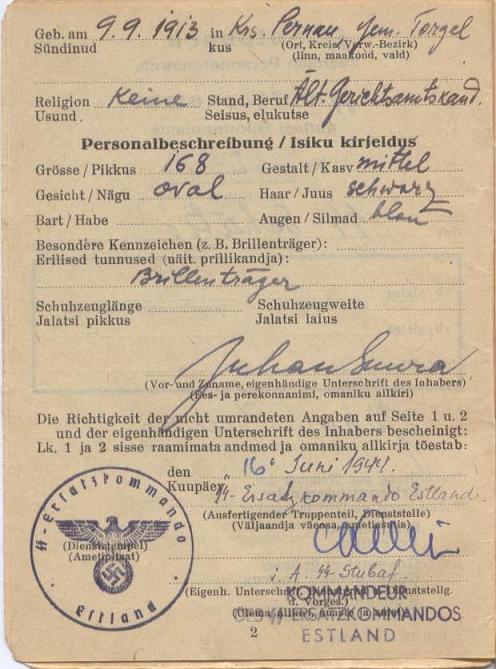 Geb. am 9.9.1913 in Krs. Pernau, Gem. Torgel
Sündinud kus (Ort, Kreis, Verw.-Bezirk)
(linn, maakond, vald)
Religion Keine Stand, Beruf Ält. Gerichtsamtskand.
Usund Seisus, elukutse
Personalbeschreibung / Isiku kirjeldus
Grösse / Pikkus 168 Gestalt / Kasv mittel
Gesicht / Nägu oval Haar / Juus schwarz
Bart / Habe Augen / Silmad blau
Besondere Kennzeichen (z. B. Brillenträger):
Erilised tunnused (näit. prillikandja):
Brillenträger
Schuhzeuglänge Schuhzeugweite
Jalatsi pikkus Jalatsi laius
Juhan
(Vor- und Zuname, eigenhändige Unterschrift des Inhabers)
(Ees- ja perekonnanimi, omaniku allkiri)
Die Richtigkeit der nicht umrandeten Angaben auf Seite 1 u. 2
und der eigenhändigen Unterschrift des Inhabers bescheinigt:
Lk. 1 ja 2 sisse raamimata andmed ja omaniku allkirja tõestab:
den „16" Juni 1944.
Kuupäev
SS-Ersatzkommando Estland
(Ausfertigender Truppenteil, Dienststelle)
(Väljaandja väeosa, ametiasutis)
SS-Ersatzkommando
(Dienststempel)
(Ametipitsat)
Estland
i. A. SS-Stubaf.
(Eigenh. Unterschrift, Dienststellg.
d. Vorges.)
KOMMANDEUR
DES SS-ERSATZKOMMANDOS
ESTLAND
2